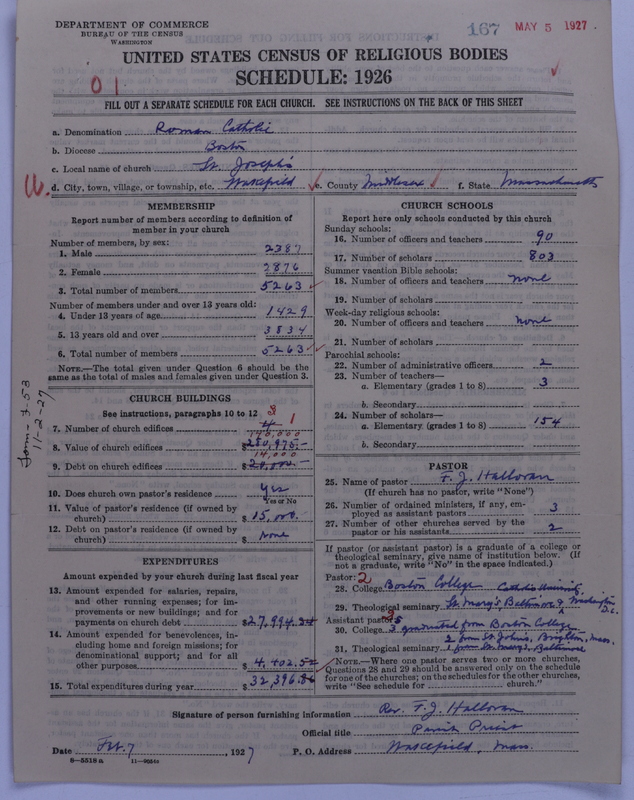 DEPARTMENT OF COMMERCE
BUREAU OF THE CENSUS
WASHINGTON
167 MAY 5 1927
UNITED STATES CENSUS OF RELIGIOUS BODIES
SCHEDULE: 1926
01
FILL OUT A SEPARATE SCHEDULE FOR EACH CHURCH. SEE INSTRUCTIONS ON THE BACK OF THIS SHEET
a. Denomination Roman Catholic
b. Diocese Boston
c. Local name of church St. Joseph's
d. City, town, village, or township, etc. Wakefield e. County Middlesex f. State Massachusetts
MEMBERSHIP
Report number of members according to definition of
member in your church
Number of members, by sex:
1. Male 2387
2. Female 2876
3. Total number of members 5263
Number of members under and over 13 years old:
4. Under 13 years of age 1429
5. 13 years old and over 3834
6. Total number of members 5263
NOTE.—The total given under Question 6 should be the
same as the total of males and females given under Question 3.
Form-3-53
11-2-27
CHURCH BUILDINGS
See instructions, paragraphs 10 to 12
7. Number of church edifices 4 1
140,000
8. Value of church edifices $ 280,975.-
14,000
9. Debt on church edifices $ 20,000.-
10. Does church own pastor's residence Yes
Yes or No
11. Value of pastor's residence (if owned by
church) $ 15,000.
12. Debt on pastor's residence (if owned by
church) $ None
EXPENDITURES
Amount expended by your church during last fiscal year
13. Amount expended for salaries, repairs,
and other running expenses; for im-
provements or new buildings; and for
payments on church debt $27,994.34
14. Amount expended for benevolences, in-
cluding home and foreign missions; for
denominational support; and for all
other purposes $ 4,402.52
15. Total expenditures during year $ 32,396.86
CHURCH SCHOOLS
Report here only schools conducted by this church
Sunday schools:
16. Number of officers and teachers 90
17. Number of scholars 803
Summer vacation Bible schools:
18. Number of officers and teachers none
19. Number of scholars
Week-day religious schools:
20. Number of officers and teachers none
21. Number of scholars
Parochial schools:
22. Number of administrative officers 2
23. Number of teachers—
a. Elementary (grades 1 to 8) 3
b. Secondary
24. Number of scholars—
a. Elementary (grades 1 to 8) 154
b. Secondary
PASTOR
25. Name of pastor F. J. Halloran
(If church has no pastor, write "None")
26. Number of ordained ministers, if any, em-
ployed as assistant pastors 3
27. Number of other churches served by the
pastor or his assistants 2
If pastor (or assistant pastor) is a graduate of a college or
theological seminary, give name of institution below. (If
not a graduate, write "No" in the space indicated.)
Pastor: 2
28. College Boston College Catholic University
29. Theological seminary St. Mary's Baltimore & Washington D.C.
Assistant pastor:
30. College 3 graduated from Boston College
2 from St. Johns, Brighton, Mass.
31. Theological seminary 1 from St. Mary's, Baltimore
NOTE.—Where one pastor serves two or more churches,
Questions 28 and 29 should be answered only on the schedule
for one of the churches; on the schedules for the other churches,
write "See schedule for church."
Signature of person furnishing information Rev. F. J. Halloran
Official title Parish Priest
Date Feb. 7, 1927 P. O. Address Wakefield, Mass.
8—5518 a